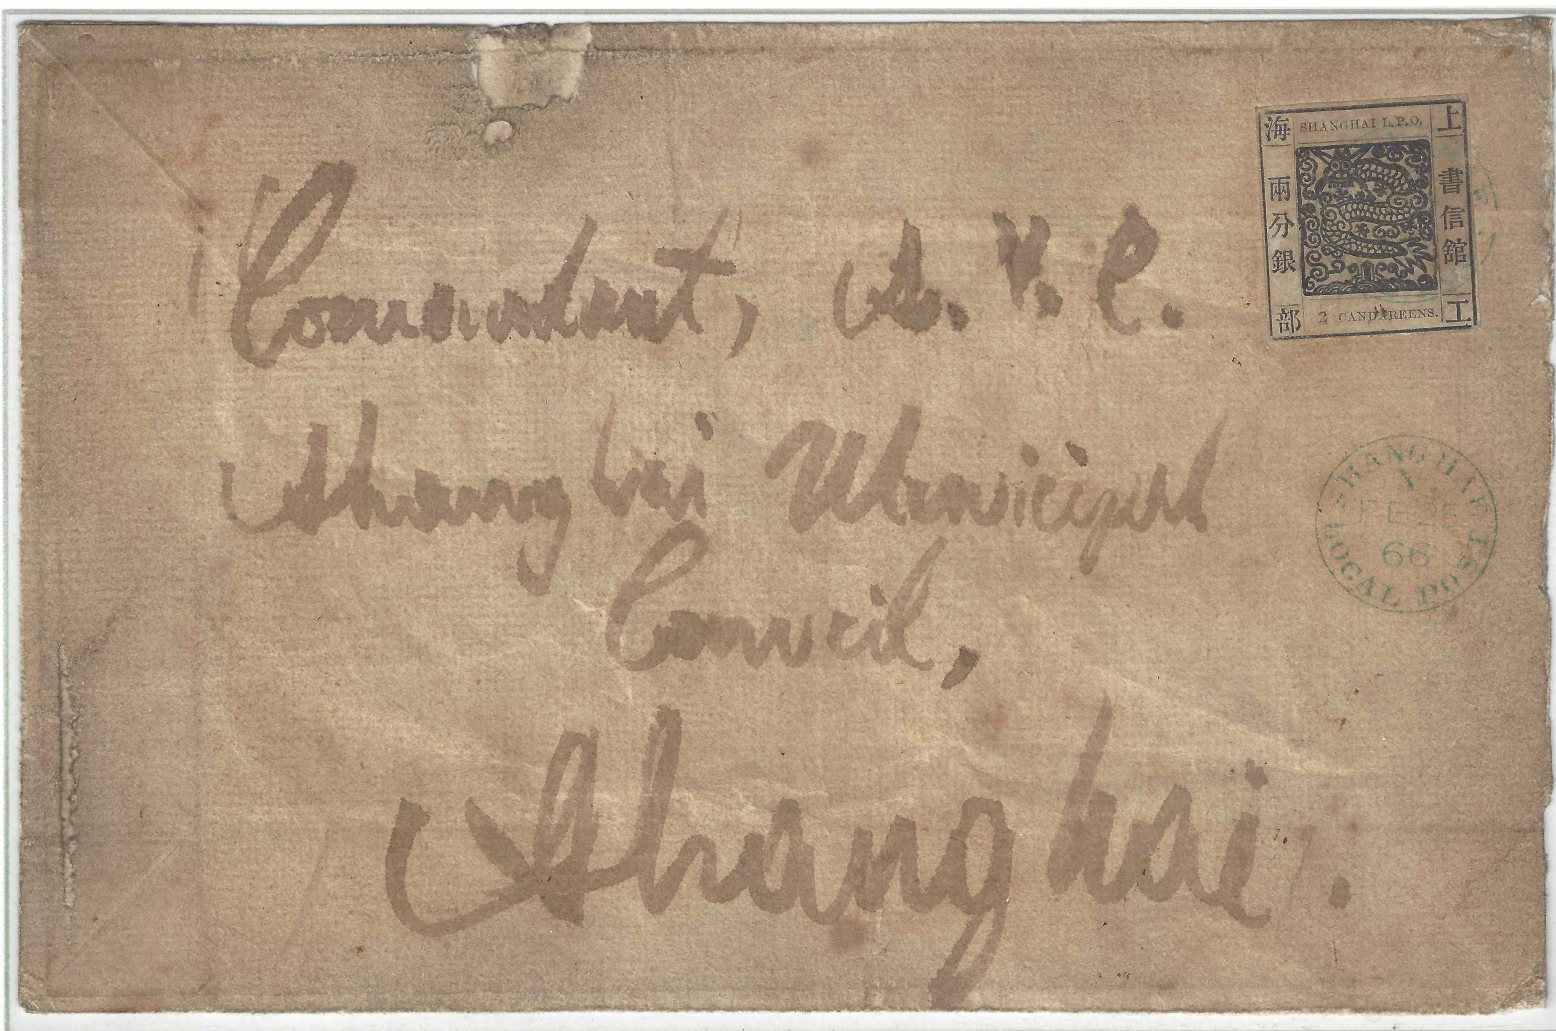 SHANGHAI L.P.O.
上海
書信館
兩分銀
工部
2 CANDAREENS.
Comandant, S.V.C.
Shanghai Municipal
Council,
Shanghai.
SHANGHAE
A
FE
66
LOCAL POST